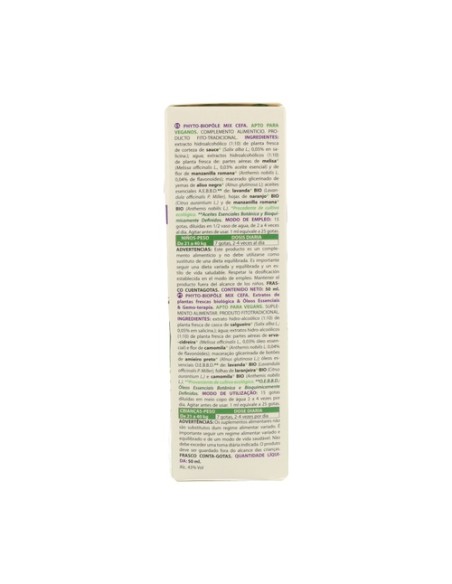 ES PHYTO-BIOPÔLE MIX CEFA. APTO PARA
VEGANOS. COMPLEMENTO ALIMENTICIO. PRODUCTO
FITO-TRADICIONAL. INGREDIENTES:
extracto hidroalcohólico (1:10) de planta fresca
de corteza de sauce* (Salix alba L.), 0,03% en salicina;
extractos hidroalcohólicos (1:10)
de planta fresca de partes aéreas de melisa*
(Melissa officinalis L., 0,03% aceite esencial) y de
flor de manzanilla romana* (Anthemis nobilis L.,
0,04% de flavonoides); macerado glicerinado de
yemas de aliso negro* (Alnus glutinosa L.); aceites
esenciales H.E.B.B.D** de: lavanda* BIO
officinalis P. Miller), hojas de naranjo* BIO
(Citrus aurantium L.) y de manzanilla romana*
BIO (Anthemis nobilis L.). *Procedente de cultivo
ecológico. **Aceites Esenciales Botánica y Bioquímicamente
Definidos. MODO DE EMPLEO: 15
gotas, diluidas en 1/2 vaso de agua, de 2 a 4 veces
al día. Agitar antes de usar. 1 ml equivale a 25 gotas.
NIÑOS-PESO DOSIS DIARIA
De 21 a 40 kg 7 gotas, 2-4 veces al día
ADVERTENCIAS: Este producto es un complemento
alimenticio y no debe utilizarse como
sustituto de una dieta equilibrada. Es importante
seguir una dieta variada y equilibrada y un estilo
de vida saludable. Respetar la dosificación
establecida en el modo de empleo. Mantener el
producto fuera del alcance de los niños. FRASCO
CUENTAGOTAS. CONTENIDO NETO: 50 ml.
PT PHYTO-BIOPÔLE MIX CEFA. Extratos de
plantas frescas biológicas & Óleos Essenciais
& Gemo-terapia. APTO PARA VEGANS. SUPLEMENTO
ALIMENTAR. PRODUTO FITOTRADICIONAL.
INGREDIENTES: extrato hidro-alcoólico (1:10) de
planta fresca de casca de salgueiro* (Salix alba L.,
(Melissa officinalis L., 0,03% óleo essencial)
e flor de camomila* (Anthemis nobilis L.,
amieiro preto* (Alnus glutinosa L.); óleos essenciais
(H.E.B.B.D)** de: lavanda* BIO
P. Miller), folhas de laranjeira* BIO (Citrus
aurantium L.) e camomila* BIO (Anthemis nobilis
L.). *Proveniente de cultivo ecológico. **H.E.B.B.D.:
Óleos Essenciais Botânica e Bioquimicamente
Definidos. MODO DE UTILIZAÇÃO: 15 gotas
diluídas em meio copo de água 2 a 4 vezes por
dia. Agitar antes de usar. 1 ml equivale a 25 gotas.
CRIANÇAS-PESO DOSE DIÁRIA
De 21 a 40 kg 7 gotas, 2-4 vezes por dia
ADVERTÊNCIAS: Os suplementos alimentares não
são substitutos dum regime alimentar variado. É
importante seguir um regime alimentar variado e
equilibrado e de um modo de vida saudável. Não
deve exceder a toma diária indicada. O produto
deve ficar fora do alcance das crianças.
FRASCO CONTA-GOTAS. QUANTIDADE LÍQUIDA:
50 ml.